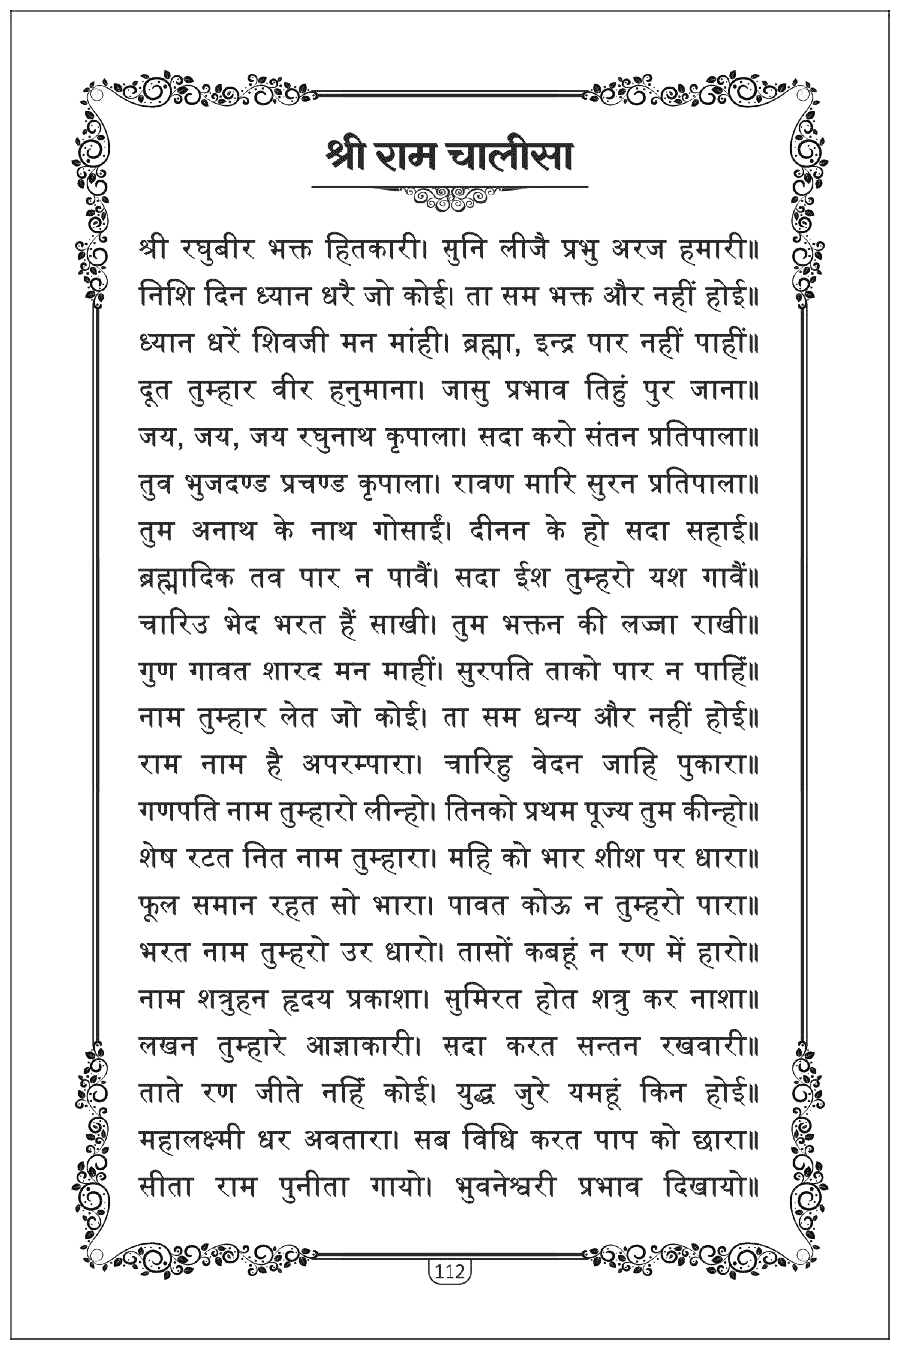 श्री राम चालीसा
श्री रघुबीर भक्त हितकारी। सुनि लीजै प्रभु अरज हमारी॥
निशि दिन ध्यान धरै जो कोई। ता सम भक्त और नहीं होई॥
ध्यान धरें शिवजी मन मांही। ब्रह्मा, इन्द्र पार नहीं पाहीं॥
दूत तुम्हार वीर हनुमाना। जासु प्रभाव तिहुं पुर जाना॥
जय, जय, जय रघुनाथ कृपाला। सदा करो संतन प्रतिपाला॥
तुव भुजदण्ड प्रचण्ड कृपाला। रावण मारि सुरन प्रतिपाला॥
तुम अनाथ के नाथ गोसाईं। दीनन के हो सदा सहाई॥
ब्रह्मादिक तव पार न पावैं। सदा ईश तुम्हरो यश गावैं॥
चारिउ भेद भरत हैं साखी। तुम भक्तन की लज्जा राखी॥
गुण गावत शारद मन माहीं। सुरपति ताको पार न पाहिं॥
नाम तुम्हार लेत जो कोई। ता सम धन्य और नहीं होई॥
राम नाम है अपरम्पारा। चारिहु वेदन जाहि पुकारा॥
गणपति नाम तुम्हारो लीन्हो। तिनको प्रथम पूज्य तुम कीन्हो॥
शेष रटत नित नाम तुम्हारा। महि को भार शीश पर धारा॥
फूल समान रहत सो भारा। पावत कोऊ न तुम्हरो पारा॥
भरत नाम तुम्हरो उर धारो। तासों कबहूं न रण में हारो॥
नाम शत्रुहन हृदय प्रकाशा। सुमिरत होत शत्रु कर नाशा॥
लखन तुम्हारे आज्ञाकारी। सदा करत सन्तन रखवारी॥
ताते रण जीते नहिं कोई। युद्ध जुरे यमहूं किन होई॥
महालक्ष्मी धर अवतारा। सब विधि करत पाप को छारा॥
सीता राम पुनीता गायो। भुवनेश्वरी प्रभाव दिखायो॥
112